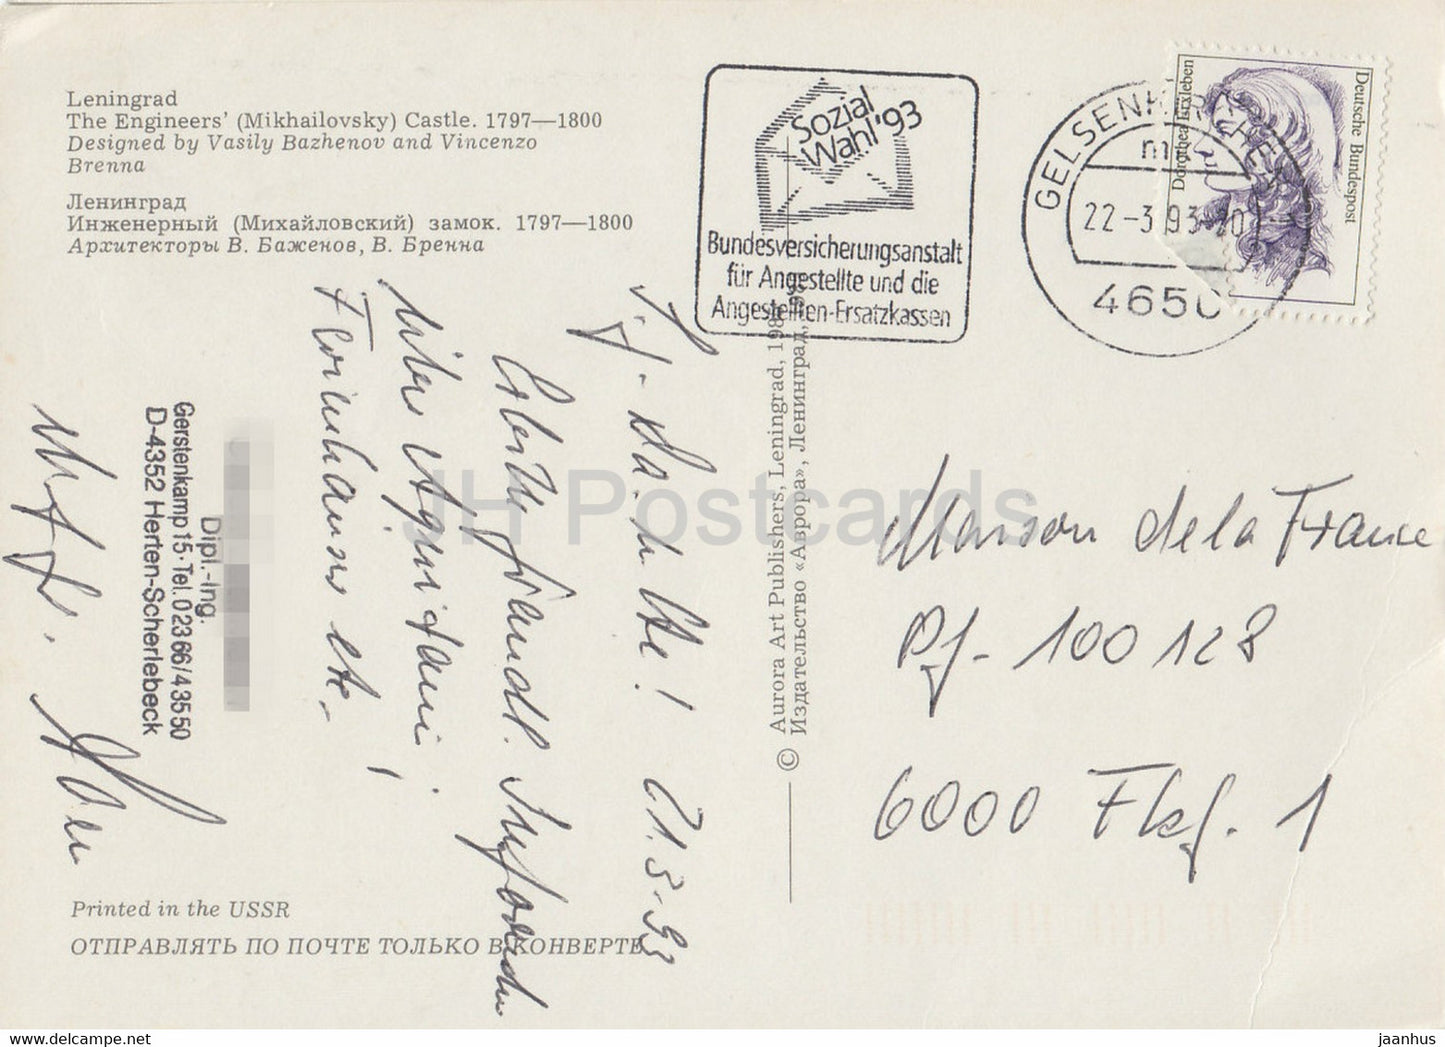 Leningrad
The Engineers' (Mikhailovsky) Castle. 1797—1800
Designed by Vasily Bazhenov and Vincenzo
Brenna
Ленинград
Инженерный (Михайловский) замок. 1797—1800
Архитекторы В. Баженов, В. Бренна
Sozial
Wahl '93
Bundesversicherungsanstalt
für Angestellte und die
Angestellten-Ersatzkassen
GELSENKIRCHEN
22-3.93-20
4650
Dorothea Erxleben
Deutsche Bundespost
21.3.93
Erbitte freundl.
über
etc.
Dipl.-Ing.
Gerstenkamp 15·Tel. 0 23 66/4 35 50
D-4352 Herten-Scherlebeck
© Aurora Art Publishers, Leningrad
Издательство «Аврора», Ленинград
Maison de la France
Pf- 100 128
6000 1
Printed in the USSR
ОТПРАВЛЯТЬ ПО ПОЧТЕ ТОЛЬКО В КОНВЕРТЕ
JH Postcards
https://www.delcampe.net
jaanhus